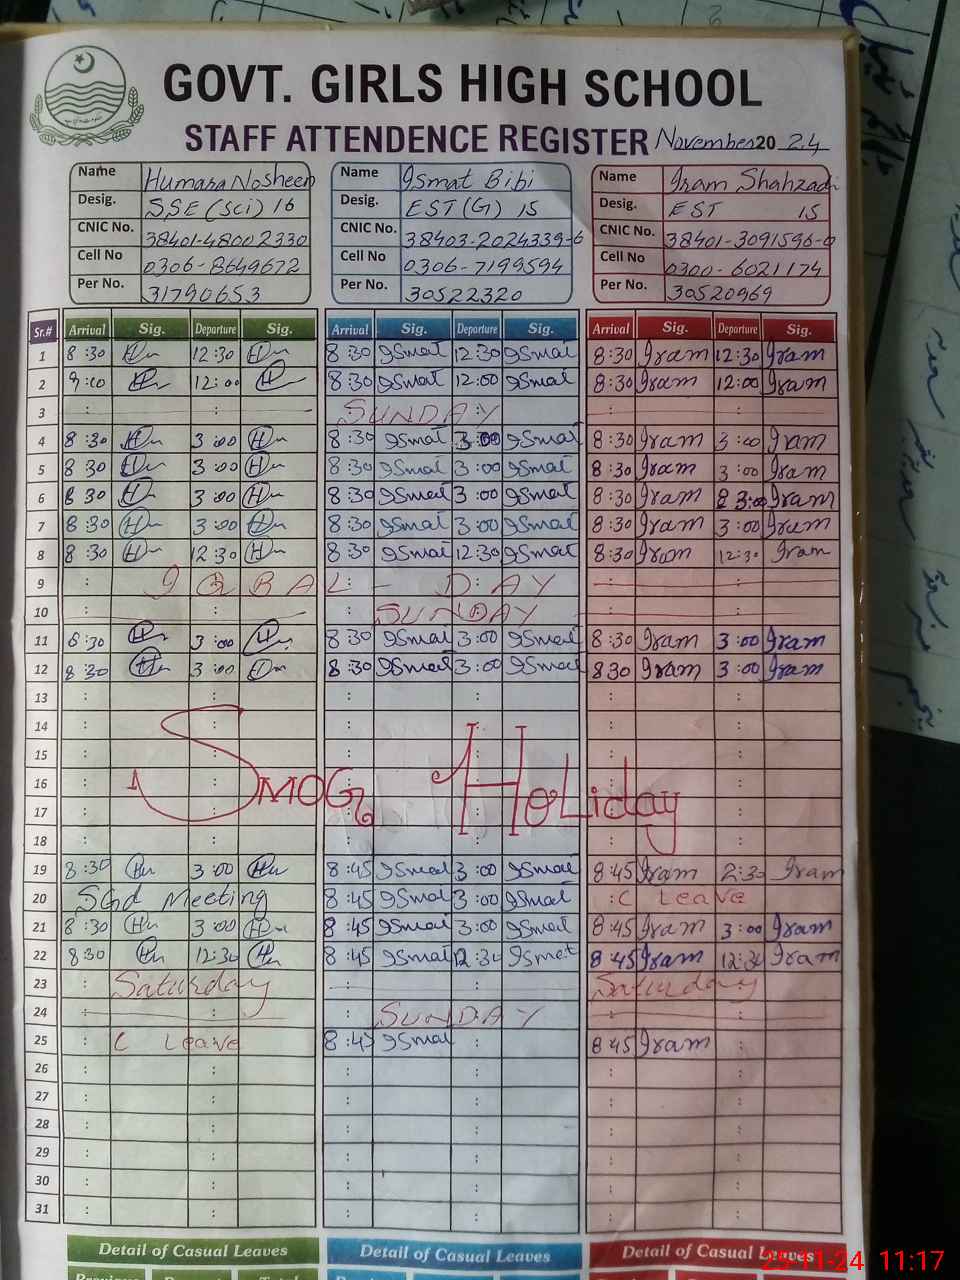 GOVT. GIRLS HIGH SCHOOL
STAFF ATTENDENCE REGISTER November 2024
Name Humara Nosheen Name Ismat Bibi Name Iram Shahzadi
Desig. SSE (Sci) 16 Desig. EST (G) 15 Desig. EST 15
CNIC No. 38401-4800233 0 CNIC No. 38403-2024339-6 CNIC No. 38401-3091596-0
Cell No 0306-8649672 Cell No 0306-7199594 Cell No 0300-6021174
Per No. 31790653 Per No. 30522320 Per No. 30520969
Sr.# Arrival Sig. Departure Sig. Arrival Sig. Departure Sig. Arrival Sig. Departure Sig.
1 8:30 Hu 12:30 Hu 8:30 Ismat 12:30 Ismat 8:30 Iram 12:30 Iram
2 9:00 Hu 12:00 Hu 8:30 Ismat 12:00 Ismat 8:30 Iram 12:00 Iram
3 : : SUNDAY : :
4 8:30 Hu 3:00 Hu 8:30 Ismat 3:00 Ismat 8:30 Iram 3:00 Iram
5 8:30 Hu 3:00 Hu 8:30 Ismat 3:00 Ismat 8:30 Iram 3:00 Iram
6 8:30 Hu 3:00 Hu 8:30 Ismat 3:00 Ismat 8:30 Iram 3:00 Iram
7 8:30 Hu 3:00 Hu 8:30 Ismat 3:00 Ismat 8:30 Iram 3:00 Iram
8 8:30 Hu 12:30 Hu 8:30 Ismat 12:30 Ismat 8:30 Iram 12:30 Iram
9 IQBAL - DAY
10 SUNDAY
11 8:30 Hu 3:00 Hu 8:30 Ismat 3:00 Ismat 8:30 Iram 3:00 Iram
12 8:30 Hu 3:00 Hu 8:30 Ismat 3:00 Ismat 8:30 Iram 3:00 Iram
13
14
15
16 SMOG HoLiday
17
18
19 8:30 Hu 3:00 Hu 8:45 Ismat 3:00 Ismat 8:45 Iram 2:30 Iram
20 SGd Meeting 8:45 Ismat 3:00 Ismat C Leave
21 8:30 Hu 3:00 Hu 8:45 Ismat 3:00 Ismat 8:45 Iram 3:00 Iram
22 8:30 Hu 12:30 Hu 8:45 Ismat 12:30 Ismat 8:45 Iram 12:30 Iram
23 Saturday Saturday
24 SUNDAY
25 C Leave 8:45 Ismat 8:45 Iram
26
27
28
29
30
31
Detail of Casual Leaves Detail of Casual Leaves Detail of Casual Leaves
25-11-24 11:17